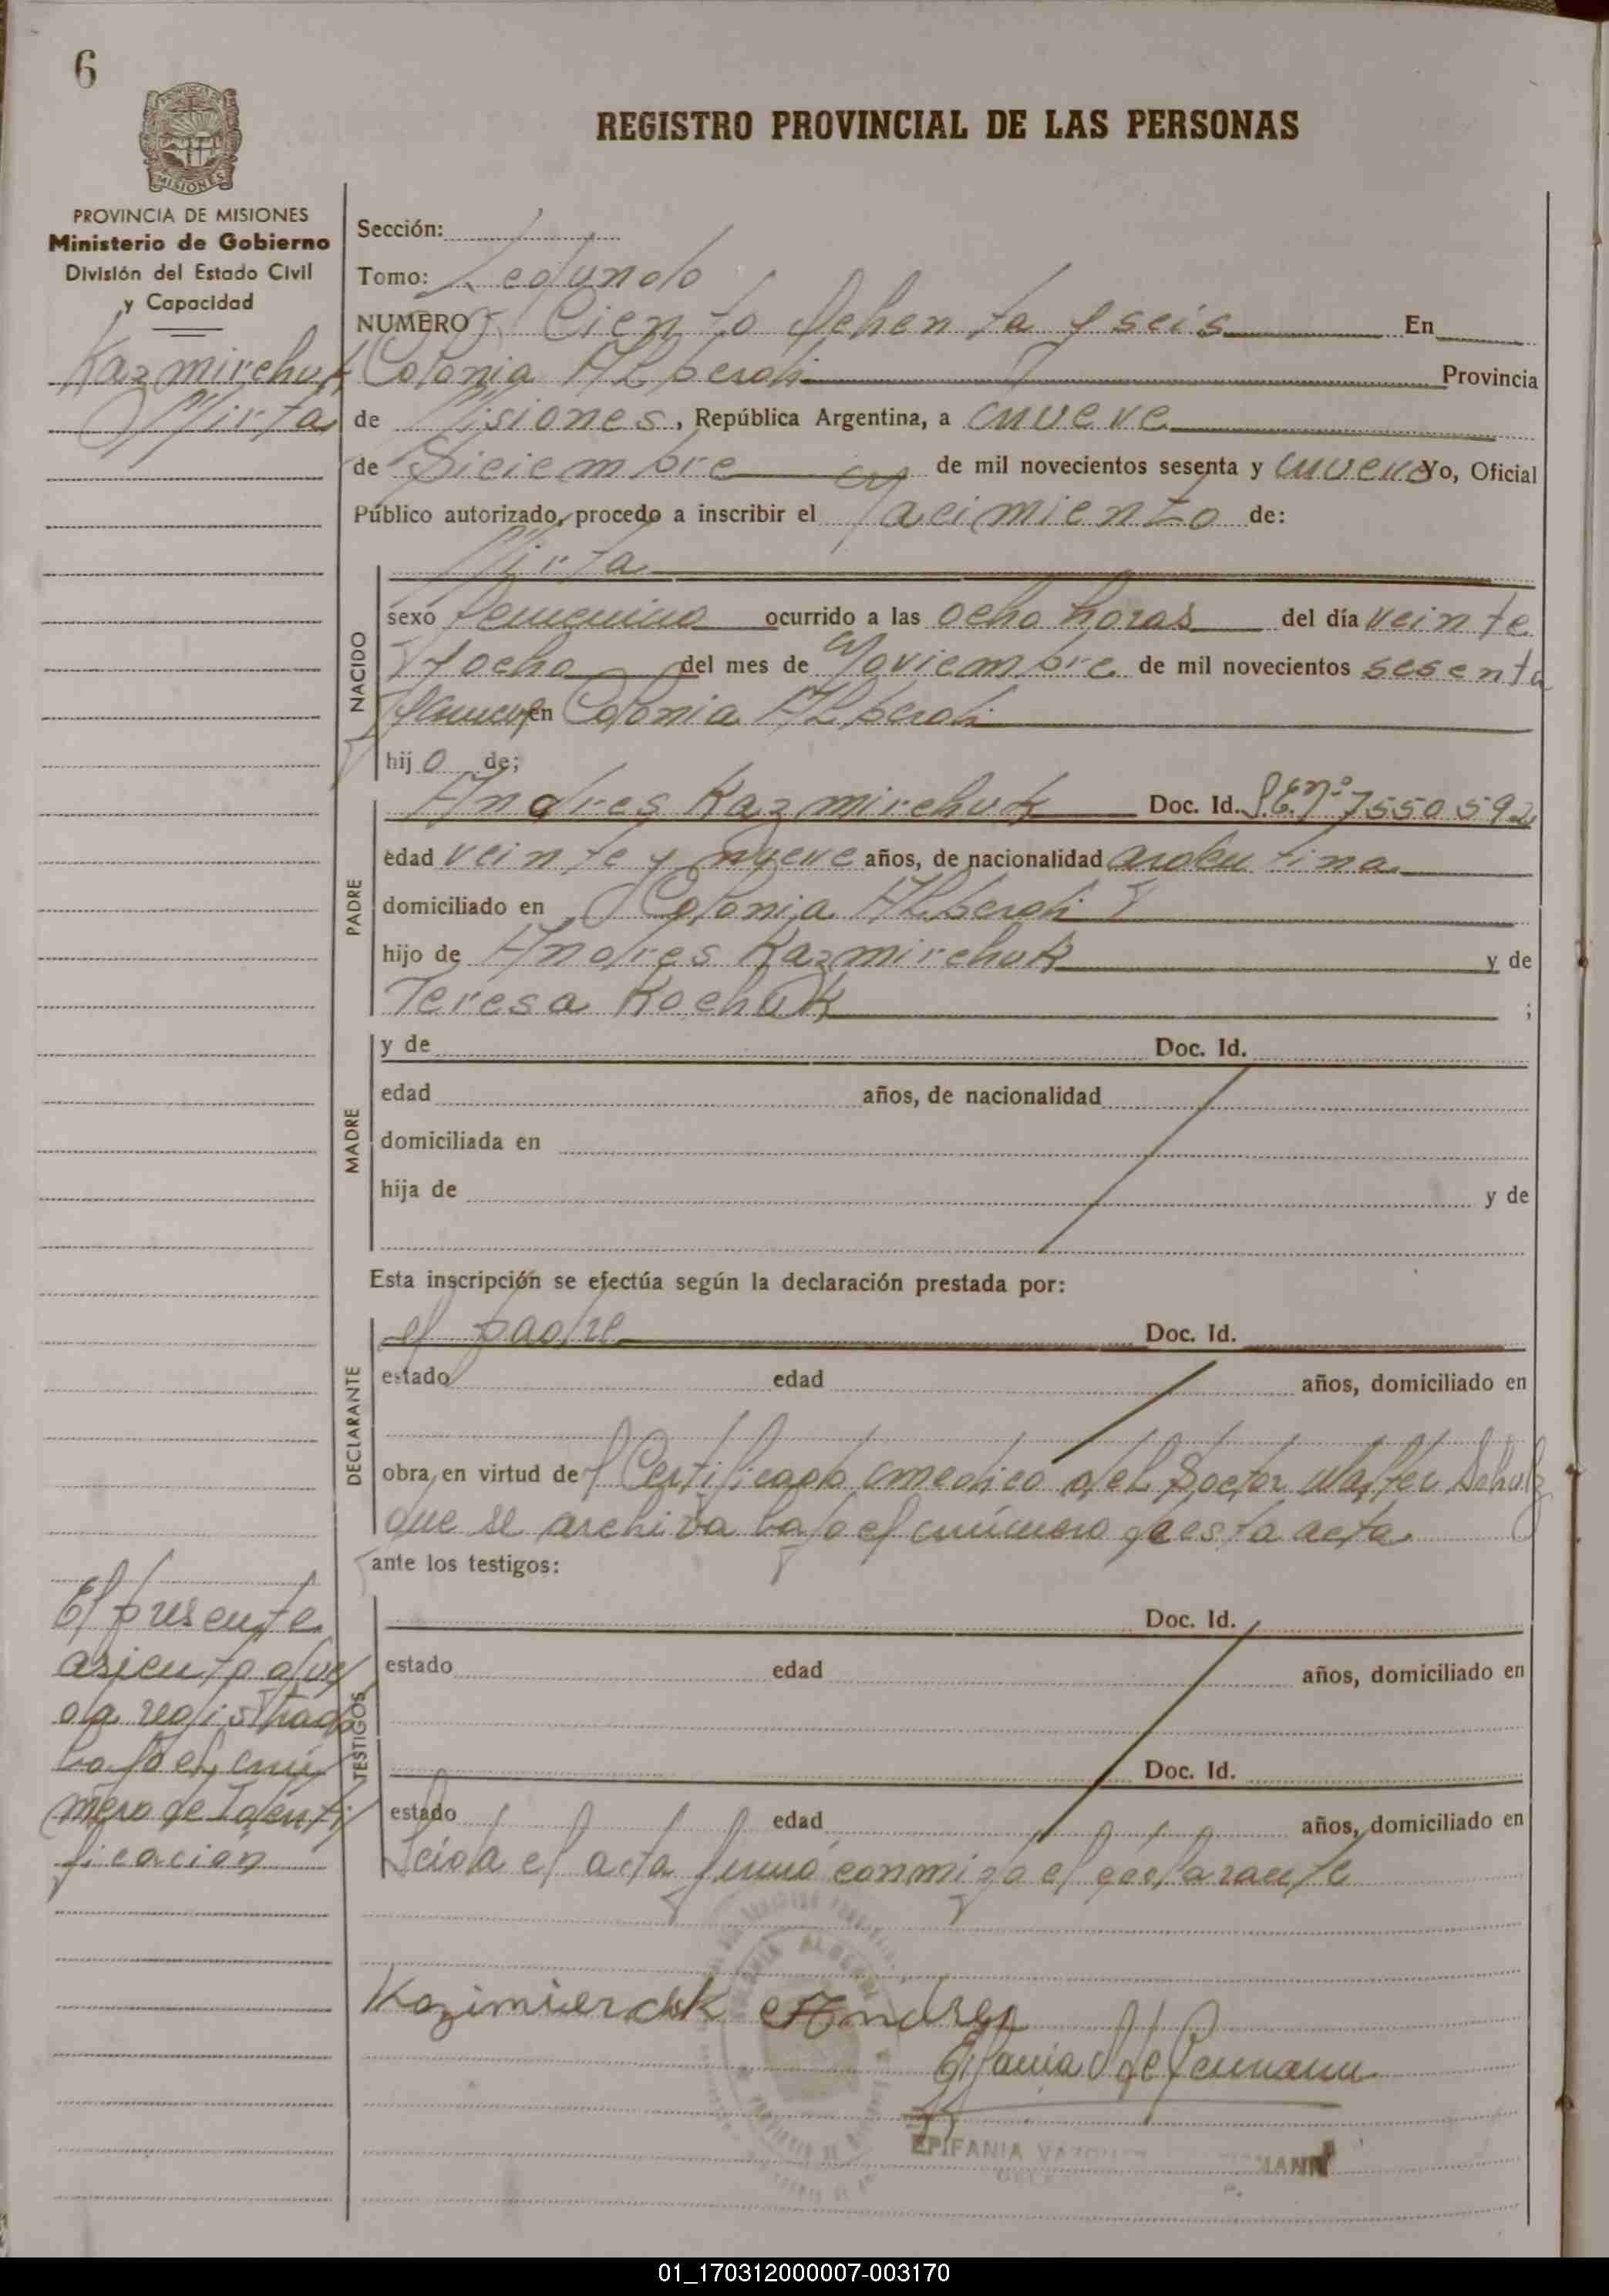 6
REGISTRO PROVINCIAL DE LAS PERSONAS
MISIONES
PROVINCIA DE MISIONES
Ministerio de Gobierno
División del Estado Civil
y Capacidad
Kazmirchuk
Mirta
Sección:
Tomo: Segundo
NUMERO Ciento Ochenta y seis En
Colonia Alberdi Provincia
de Misiones, República Argentina, a nueve
de Diciembre de mil novecientos sesenta y nueve Yo, Oficial
Público autorizado, procedo a inscribir el Nacimiento de:
NACIDO
Mirta
sexo femenino ocurrido a las ocho horas del día veinte
y ocho del mes de Noviembre de mil novecientos sesenta
y nueve en Colonia Alberdi
hijo de;
PADRE
Andres Kazmirchuk Doc. Id. L.E.Nº 7550592
edad veinte y nueve años, de nacionalidad argentina
domiciliado en Colonia Alberdi
hijo de Andres Kazmirchuk y de
Teresa Kochuk ;
MADRE
y de Doc. Id.
edad años, de nacionalidad
domiciliada en
hija de y de
Esta inscripción se efectúa según la declaración prestada por:
DECLARANTE
el padre Doc. Id.
estado edad años, domiciliado en
obra, en virtud del Certificado medico del Doctor Walter Schulz
que se archiva bajo el número de esta acta.
ante los testigos:
TESTIGOS
Doc. Id.
estado edad años, domiciliado en
Doc. Id.
estado edad años, domiciliado en
Leida el acta firmó conmigo el declarante
El presente
asiento que
da registrado
bajo el nú
mero de Identi
ficación
Kazimierchk Andres
Epifania V de Neumann
EPIFANIA MANN
01_170312000007-003170